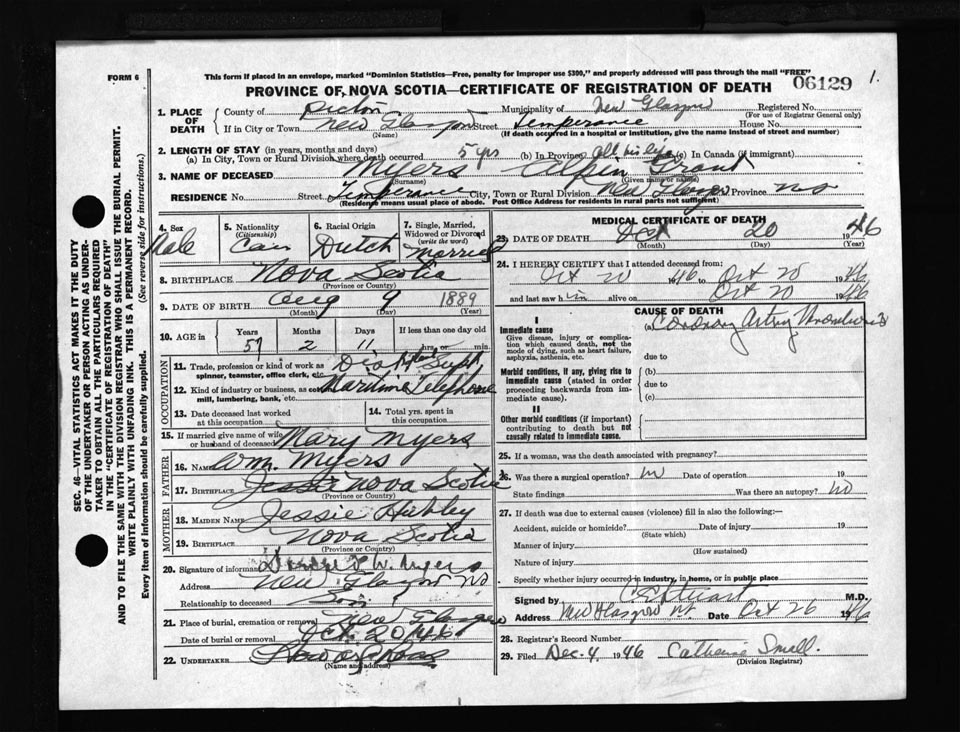 FORM 6
This form if placed in an envelope, marked "Dominion Statistics—Free, penalty for improper use $300," and properly addressed will pass through the mail "FREE"
PROVINCE OF NOVA SCOTIA—CERTIFICATE OF REGISTRATION OF DEATH 06129 1.
SEC. 46—VITAL STATISTICS ACT MAKES IT THE DUTY
OF THE UNDERTAKER OR PERSON ACTING AS UNDER-
TAKER TO OBTAIN ALL THE PARTICULARS REQUIRED
IN THE "CERTIFICATE OF REGISTRATION OF DEATH"
AND TO FILE THE SAME WITH THE DIVISION REGISTRAR WHO SHALL ISSUE THE BURIAL PERMIT.
WRITE PLAINLY WITH UNFADING INK. THIS IS A PERMANENT RECORD.
Every item of information should be carefully supplied. (See reverse side for instructions.)
1. PLACE OF DEATH County of Pictou Municipality of New Glasgow Registered No.
(For use of Registrar General only)
If in City or Town New Glasgow Street Temperance House No.
(Name) (If death occurred in a hospital or institution, give the name instead of street and number)
2. LENGTH OF STAY (in years, months and days)
(a) In City, Town or Rural Division where death occurred 5 yrs (b) In Province all his life (c) In Canada (if immigrant)
3. NAME OF DECEASED Myers Alpin Grant
(Surname) (Given name or names)
RESIDENCE No. Street Temperance City, Town or Rural Division New Glasgow Province NS
(Residence means usual place of abode. Post Office Address for residents in rural parts not sufficient)
4. Sex Male
5. Nationality (Citizenship) Can
6. Racial Origin Dutch
7. Single, Married, Widowed or Divorced (write the word) Married
8. BIRTHPLACE Nova Scotia
(Province or Country)
9. DATE OF BIRTH Aug 9 1889
(Month) (Day) (Year)
10. AGE in Years Months Days If less than one day old
57 2 11 hrs. or min.
OCCUPATION
11. Trade, profession or kind of work as spinner, teamster, office clerk, etc. Dist Plant Supt
12. Kind of industry or business, as cotton mill, lumbering, bank, etc. Maritime Telephone
13. Date deceased last worked at this occupation
14. Total yrs. spent in this occupation
15. If married give name of wife or husband of deceased Mary Myers
FATHER
16. Name Wm. Myers
17. Birthplace Jessie Nova Scotia
(Province or Country)
MOTHER
18. Maiden Name Jessie Hubley
19. Birthplace Nova Scotia
(Province or Country)
20. Signature of informant W. Myers
Address New Glasgow NS
Relationship to deceased Son
21. Place of burial, cremation or removal New Glasgow
Date of burial or removal Oct 20/46
22. UNDERTAKER
(Name and address)
MEDICAL CERTIFICATE OF DEATH
23. DATE OF DEATH Oct 20 1946
(Month) (Day) (Year)
24. I HEREBY CERTIFY that I attended deceased from:
Oct 20 1946 Oct 20 1946
and last saw him alive on Oct 20 1946
CAUSE OF DEATH
I
Immediate cause (a) Coronary Artery Thrombosis
Give disease, injury or complication which caused death, not the mode of dying, such as heart failure, asphyxia, asthenia, etc.
due to
Morbid conditions, if any, giving rise to immediate cause (stated in order proceeding backwards from immediate cause). (b)
due to
(c)
II
Other morbid conditions (if important) contributing to death but not causally related to immediate cause.
25. If a woman, was the death associated with pregnancy?
26. Was there a surgical operation? no Date of operation 19
State findings Was there an autopsy? no
27. If death was due to external causes (violence) fill in also the following:—
Accident, suicide or homicide? Date of injury 19
(State which)
Manner of injury
(How sustained)
Nature of injury
Specify whether injury occurred in industry, in home, or in public place
Signed by C E Stuart M.D.
Address New Glasgow Date Oct 26 1946
28. Registrar's Record Number
29. Filed Dec. 4, 1946 Catherine Small.
(Division Registrar)